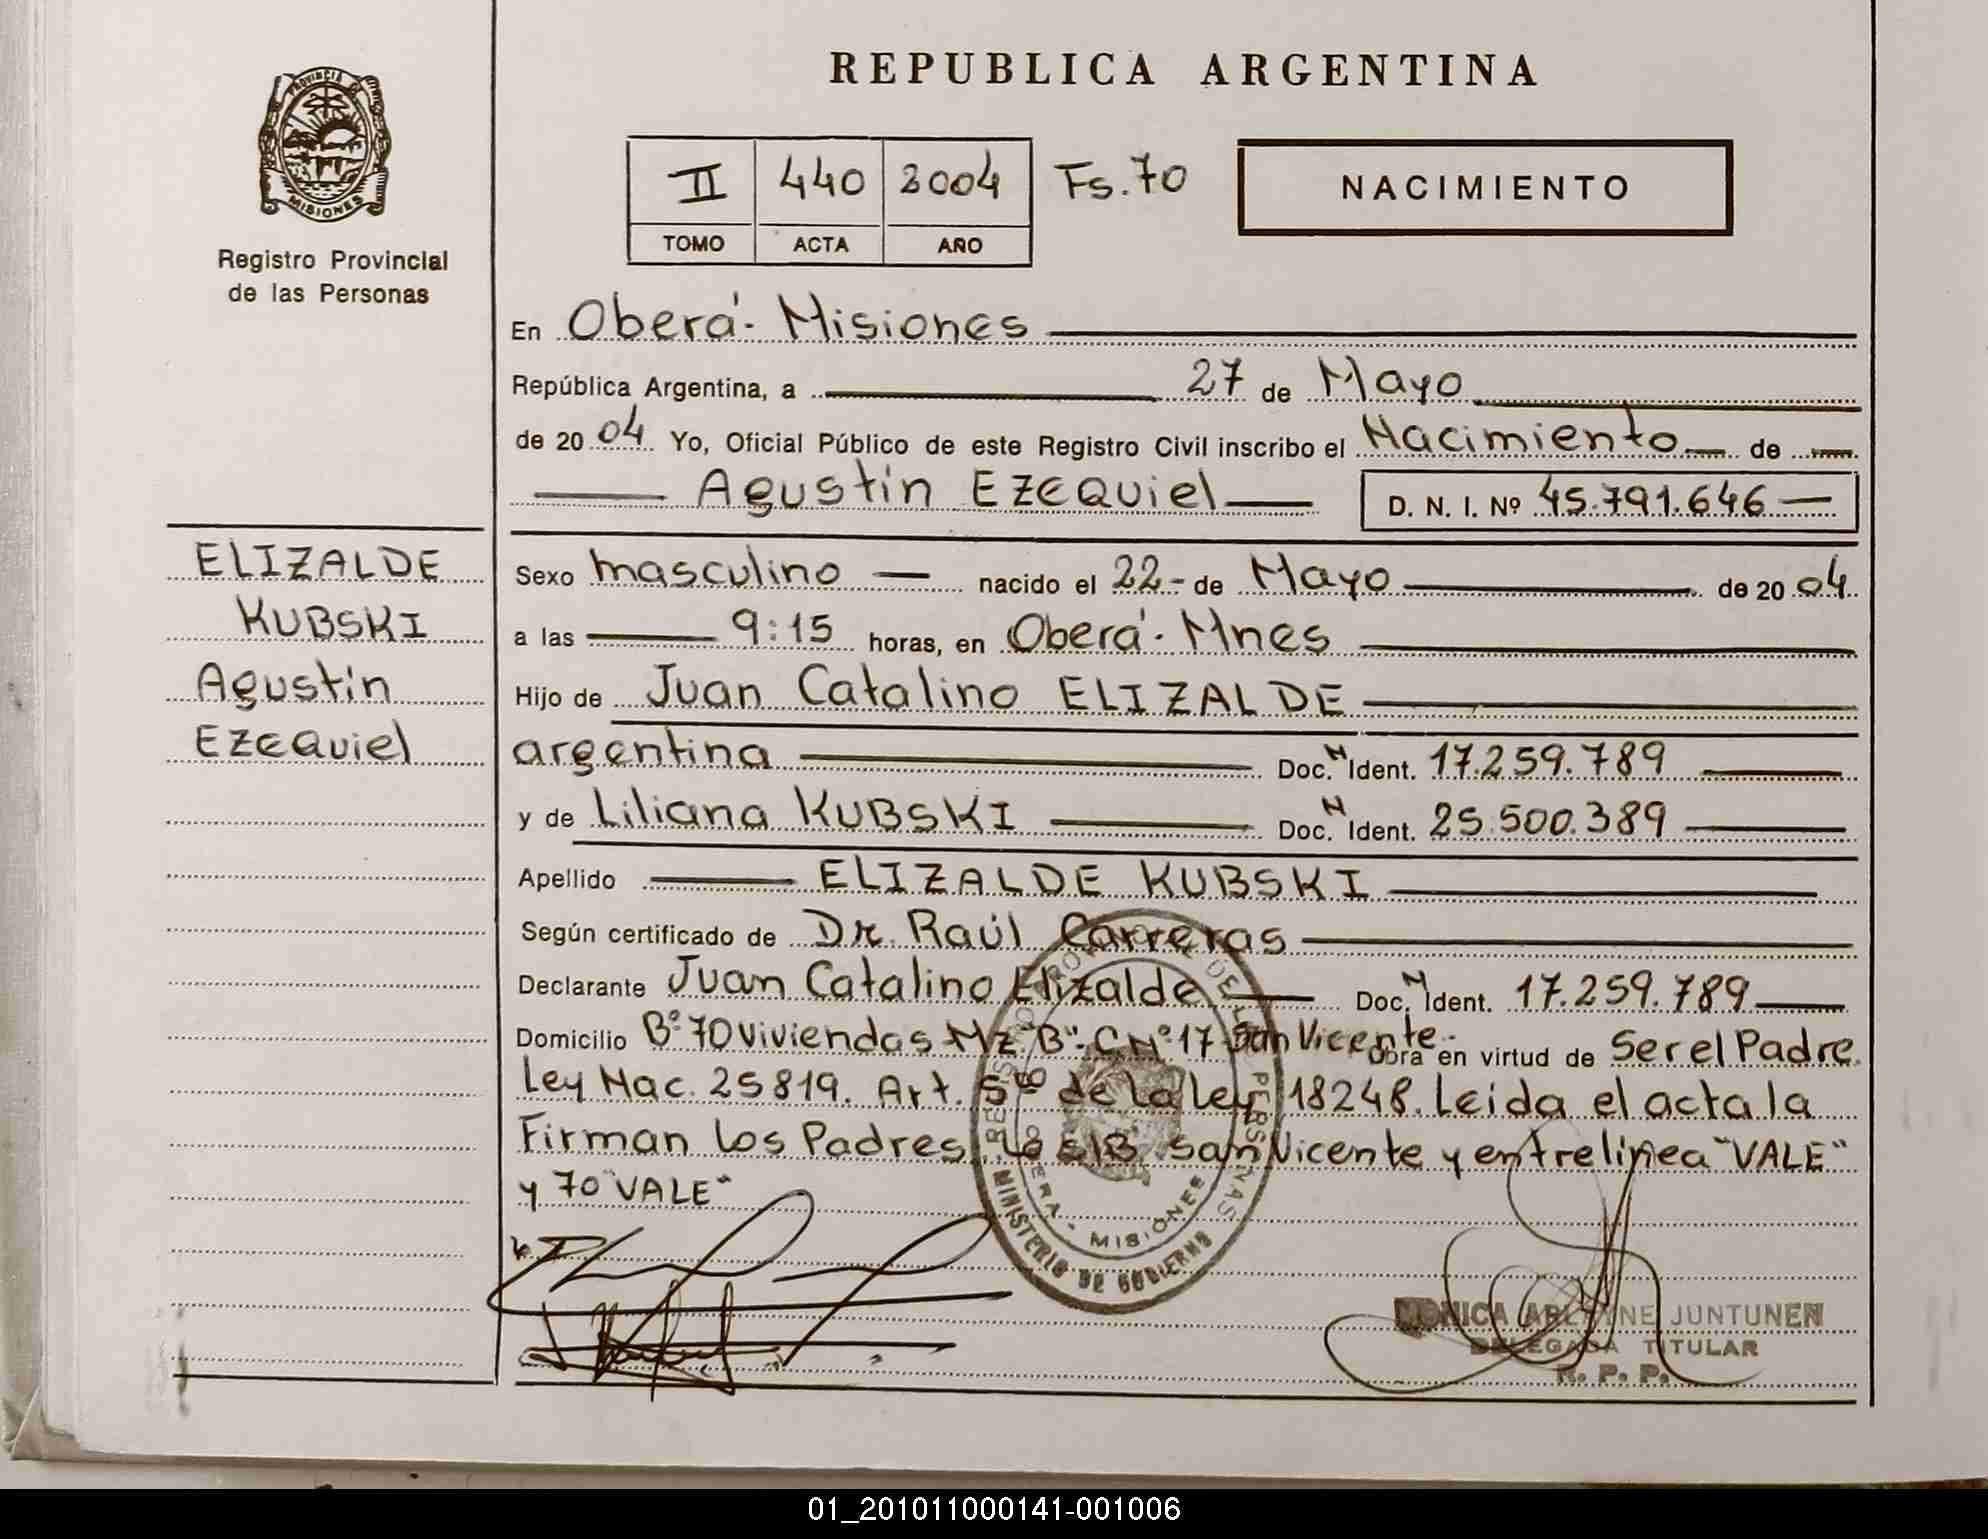 REPUBLICA ARGENTINA
PROVINCIA DE
MISIONES
Registro Provincial
de las Personas
II 440 2004 Fs. 70
TOMO ACTA AÑO
NACIMIENTO
En Oberá - Misiones
República Argentina, a 27 de Mayo
de 20 04 Yo, Oficial Público de este Registro Civil inscribo el Nacimiento de
Agustín Ezequiel D. N. I. Nº 45.791.646
ELIZALDE
KUBSKI
Agustín
Ezequiel
Sexo masculino nacido el 22 - de Mayo de 20 04
a las 9:15 horas, en Oberá - Mnes
Hijo de Juan Catalino ELIZALDE
argentina Doc. N Ident. 17.259.789
y de Liliana KUBSKI Doc. N Ident. 25.500.389
Apellido ELIZALDE KUBSKI
Según certificado de Dr. Raúl Carreras
Declarante Juan Catalino Elizalde Doc. N Ident. 17.259.789
Domicilio Bº 70 Viviendas Mz "B" - C Nº 17 San Vicente - Obra en virtud de Ser el Padre
Ley Nac. 25819. Art. 5to de la Ley 18248. Leida el acta la
Firman los Padres San Vicente y entrelinea "VALE"
y 70 "VALE"
MISIONES
MINISTERIO DE GOBIERNO
MONICA JUNTUNEN
DELEGADA TITULAR
R. P. P.
01_201011000141-001006